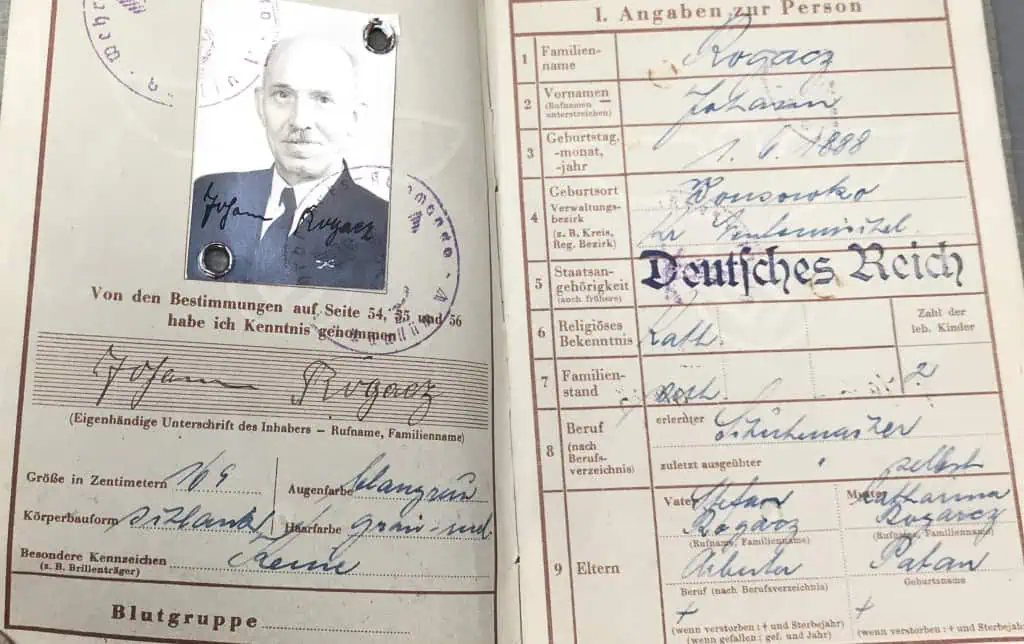 Johann Rogacz
Von den Bestimmungen auf Seite 54, 55 und 56
habe ich Kenntnis genommen
Johann Rogacz
(Eigenhändige Unterschrift des Inhabers – Rufname, Familienname)
Größe in Zentimetern 169
Augenfarbe blaugrün
Körperbauform schlank
Haarfarbe grau-
Besondere Kennzeichen Keine
(z. B. Brillenträger)
Blutgruppe
I. Angaben zur Person
1 Familien-
name Rogacz
2 Vornamen Johann
(Rufnamen
unterstreichen)
3 Geburtstag,
-monat,
-jahr 1. 6. 1888
4 Geburtsort
Verwaltungs-
bezirk
(z. B. Kreis,
Reg. Bezirk)
Kr
5 Staatsan-
gehörigkeit
(auch frühere)
Deutsches Reich
6 Religiöses
Bekenntnis Kath.
Zahl der
leb. Kinder
7 Familien-
stand 2
8 Beruf
(nach
Berufs-
verzeichnis)
erlernter
zuletzt ausgeübter " selbst
9 Eltern
Vater Stefan
Rogacz
(Rufname, Familienname)
Arbeiter
Beruf (nach Berufsverzeichnis)
+
(wenn verstorben: + und Sterbejahr)
(wenn gefallen: gef. und Jahr)
Mutter Catharina
Rogacz
(Rufname, Familienname)
Geburtsname
+
(wenn verstorben: + und Sterbejahr)